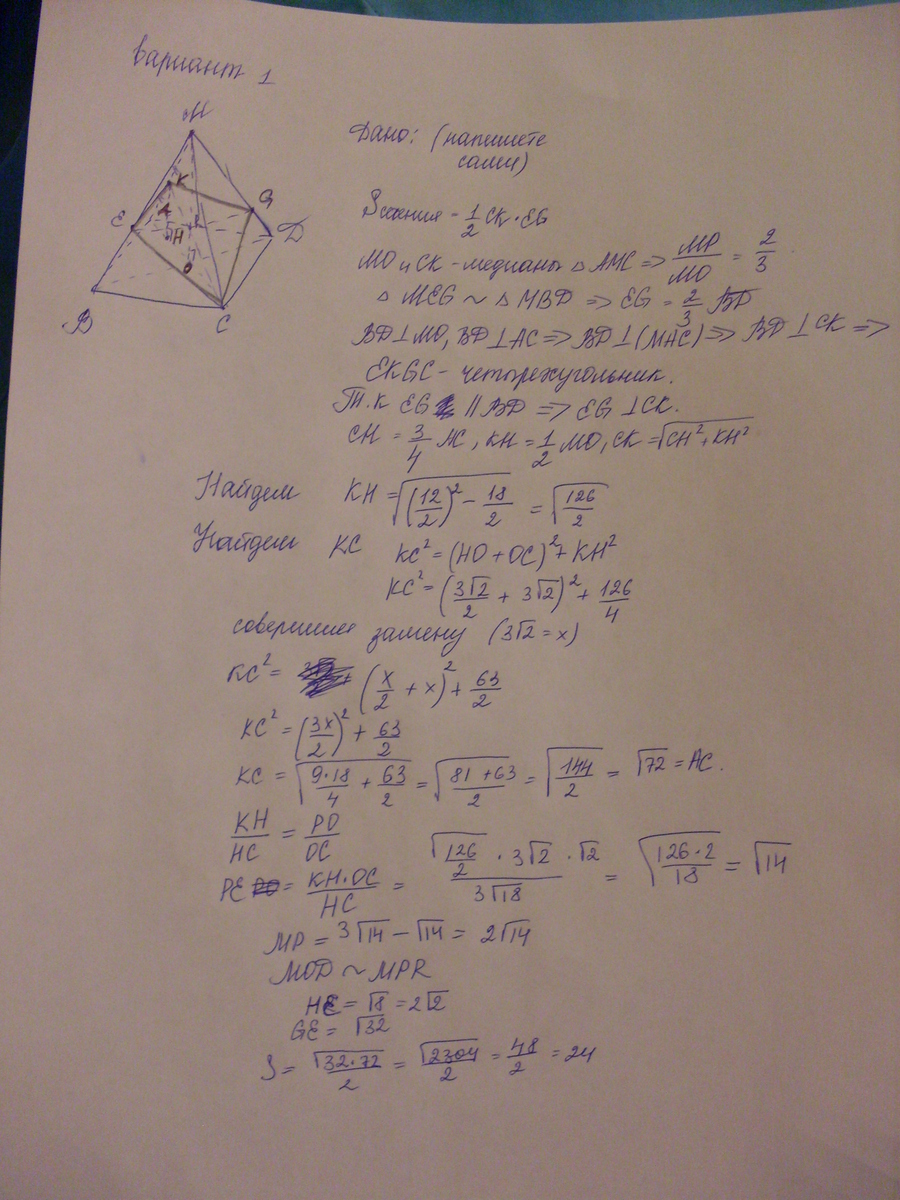 вариант 1
M
K
G
E
A
H
P
D
O
B
C
Дано: (напишете
сами)
Sсечения = 1/2 CK · EG
MO и CK - медианы △ AMC => MP/MO = 2/3
△ MEG ~ △ MBD => EG = 2/3 BD
BD ⊥ MO, BD ⊥ AC => BD ⊥ (MAC) => BD ⊥ CK =>
EKGC - четырехугольник.
Т.к EG || BD => EG ⊥ CK.
CH = 3/4 AC, KH = 1/2 MO, CK = √(CH² + KH²)
Найдем KH = √((12/2)² - 18/2) = √(126/2)
Найдем KC KC² = (HO + OC)² + KH²
KC² = (3√2/2 + 3√2)² + 126/4
совершим замену (3√2 = x)
KC² = (x/2 + x)² + 63/2
KC² = (3x/2)² + 63/2
KC = √(9·18/4 + 63/2) = √((81 + 63)/2) = √(144/2) = √72 = AC.
KH/HC = PO/OC
PE = KH·OC/HC = (√126/2 · 3√2 · √2)/(3√18) = √(126·2/18) = √14
MP = 3√14 - √14 = 2√14
MOD ~ MPR
HE = √8 = 2√2
GE = √32
S = √(32·72)/2 = √2304/2 = 48/2 = 24